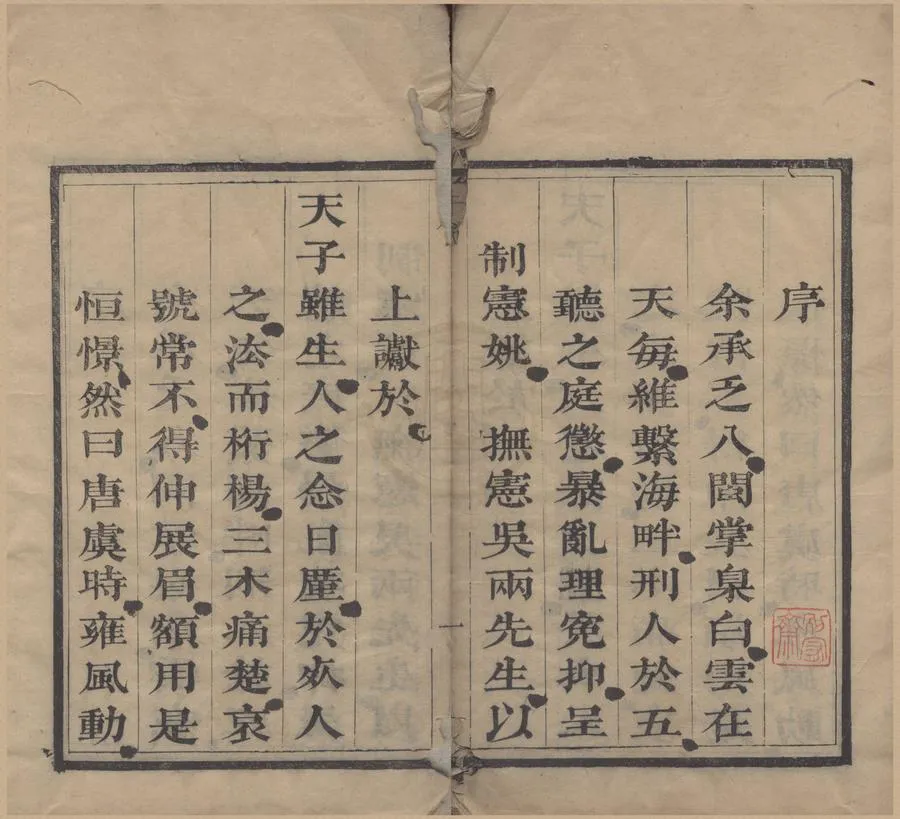 序
余承乏八閩掌臬白雲在
天每維繫海畔刑人於五
聽之庭懲暴亂理冤抑呈
制憲姚 撫憲吳兩先生以
一
上讞於
天子雖生人之念日廑於人
之法而桁楊三木痛楚哀
號常不得伸展眉額用是
恒憬然曰唐虞時雍風動